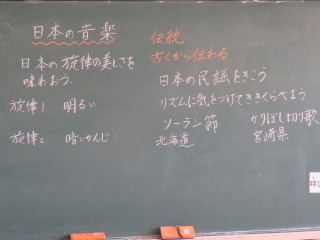 日本の音楽
日本の旋律の美しさを
味わおう。
旋律1 明るい
旋律2 暗いかんじ
伝統
古くから伝わる
日本の民謡をきこう
リズムに気をつけてききくらべよう
ソーラン節
北海道
かりぼし切り歌
宮崎県
呼び